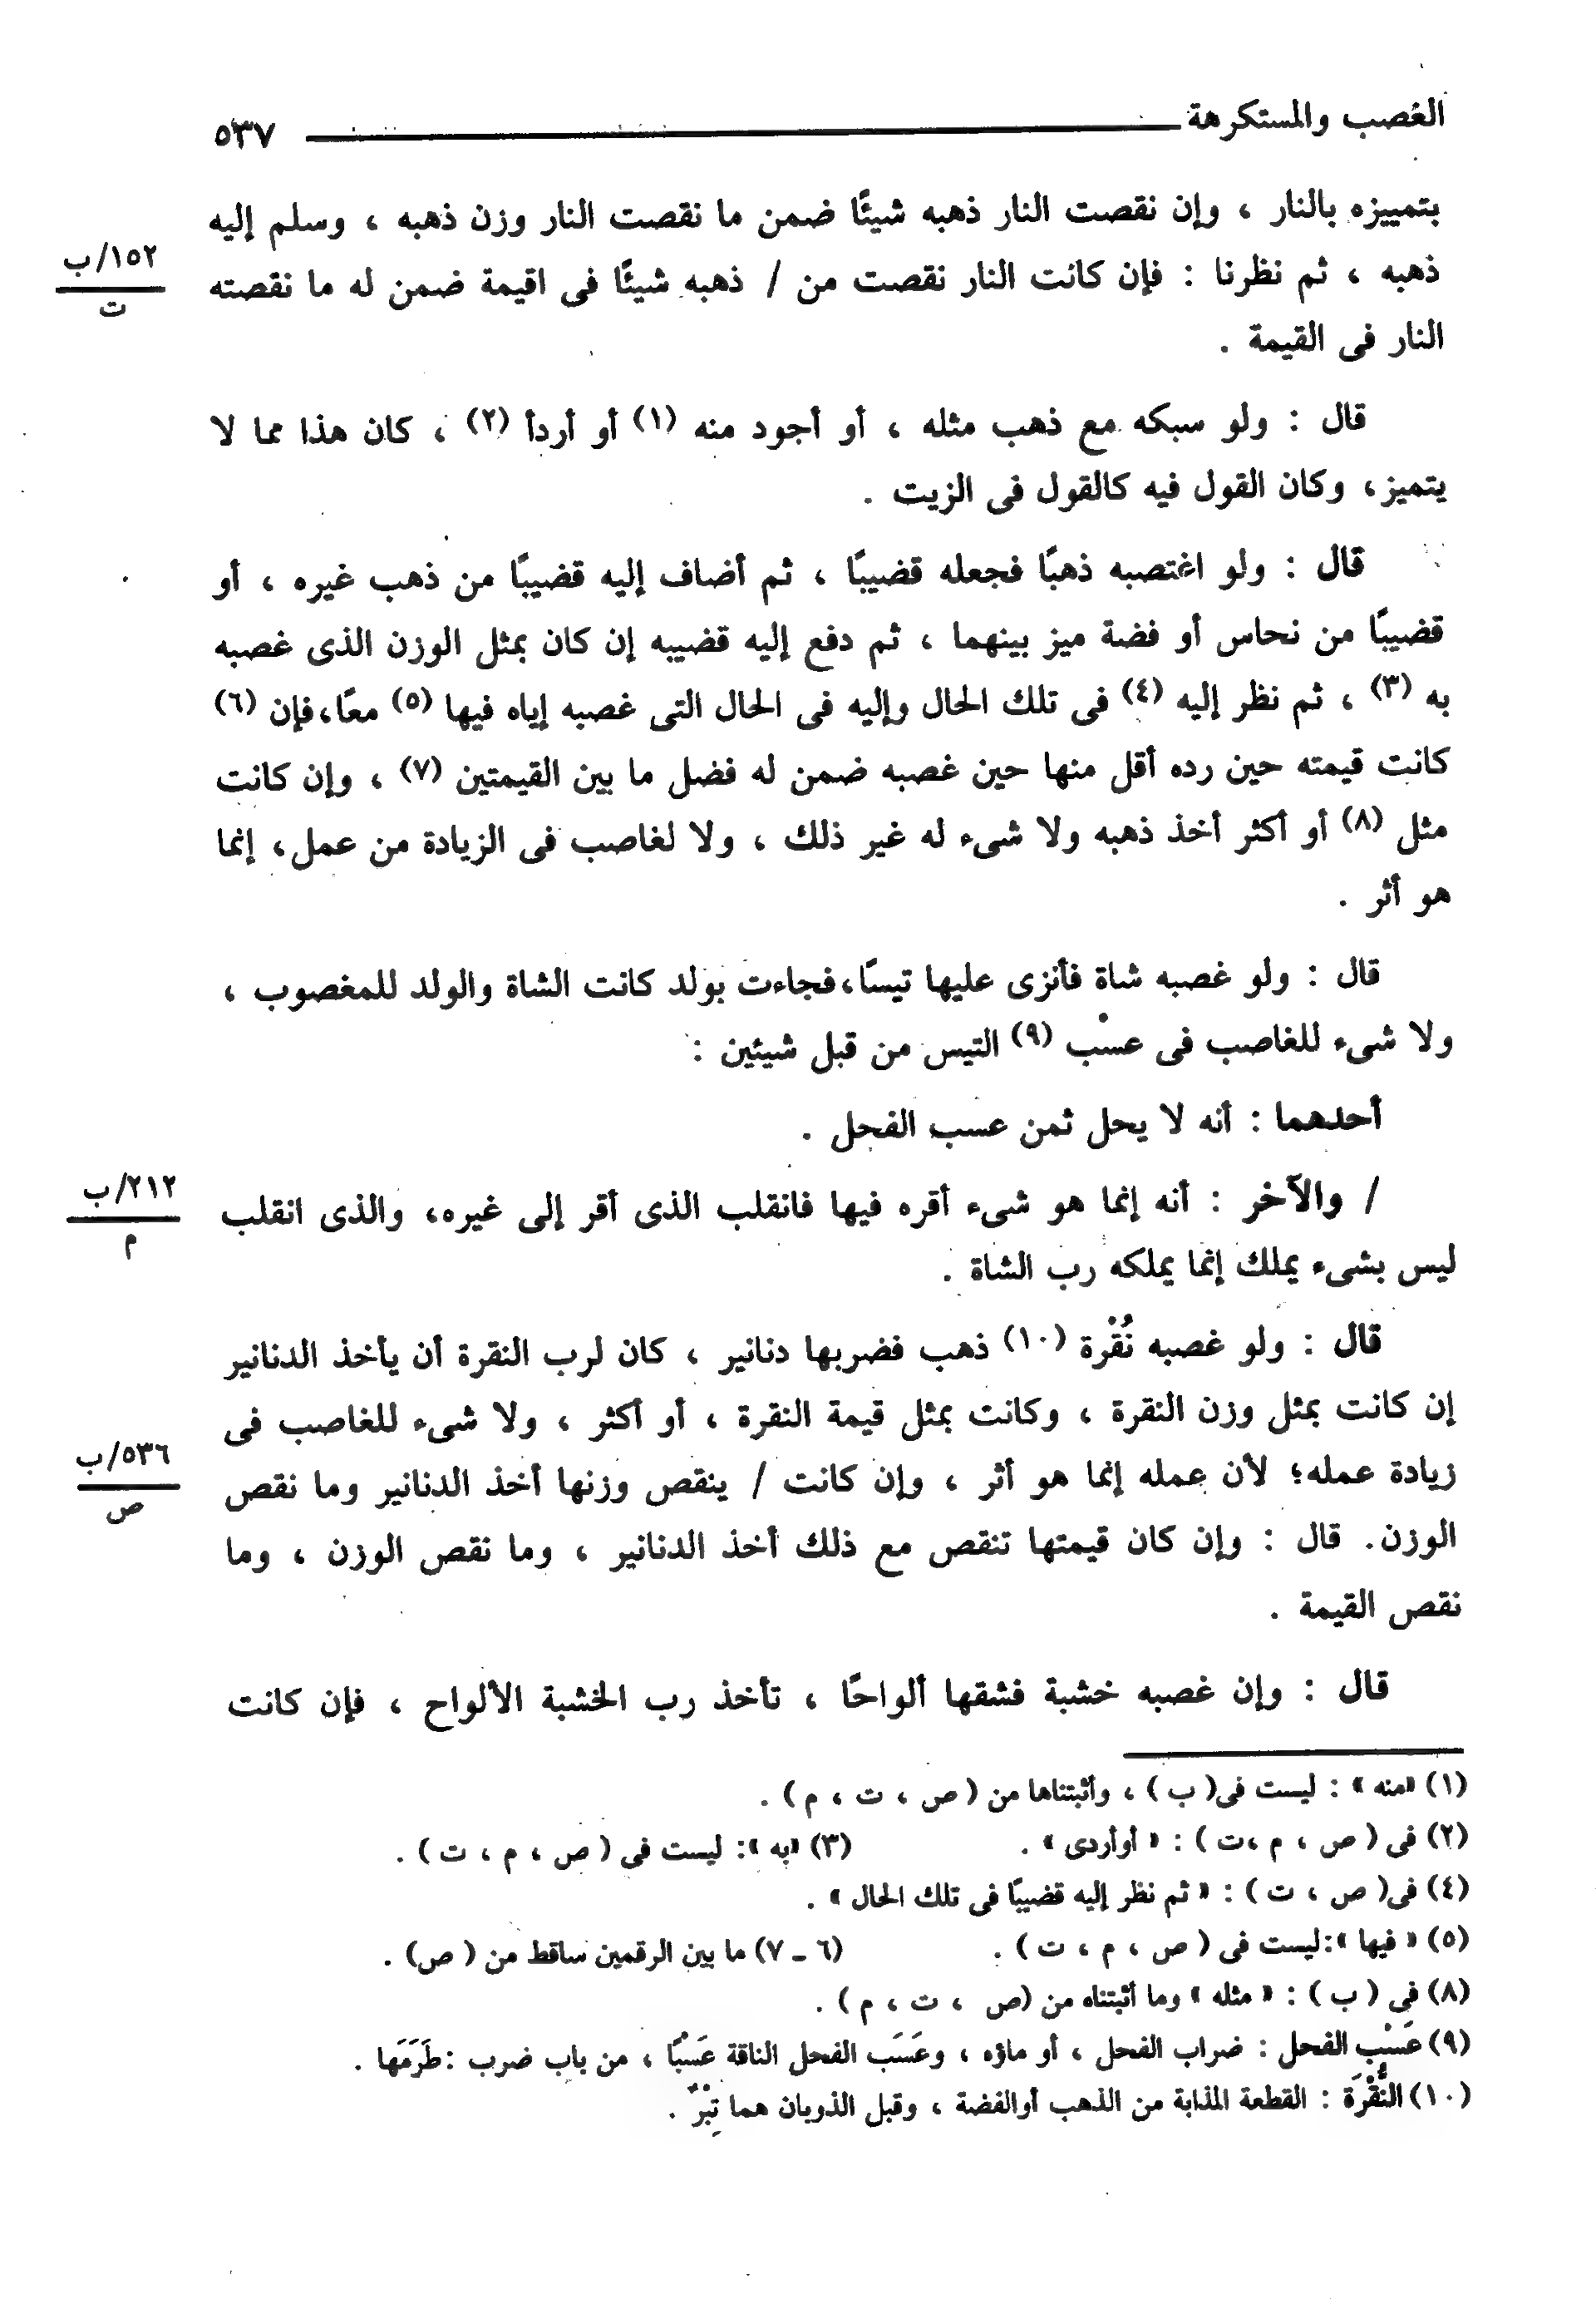 الغصب والمستكرهة ٥٣٧
بتمييزه بالنار ، وإن نقصت النار ذهبه شيئًا ضمن ما نقصت النار وزن ذهبه ، وسلم إليه
١٥٢/ب
ت
ذهبه ، ثم نظرنا : فإن كانت النار نقصت من / ذهبه شيئًا فى اقيمة ضمن له ما نقصته
النار فى القيمة .
قال : ولو سبكه مع ذهب مثله ، أو أجود منه (١) أو أردأ (٢) ، كان هذا مما لا
يتميز، وكان القول فيه كالقول فى الزيت .
قال : ولو اغتصبه ذهبًا فجعله قضيبًا ، ثم أضاف إليه قضيبًا من ذهب غيره ، أو
قضيبًا من نحاس أو فضة ميز بينهما ، ثم دفع إليه قضيبه إن كان بمثل الوزن الذى غصبه
به (٣) ، ثم نظر إليه (٤) فى تلك الحال وإليه فى الحال التى غصبه إياه فيها (٥) معًا،فإن (٦)
كانت قيمته حين رده أقل منها حين غصبه ضمن له فضل ما بين القيمتين (٧) ، وإن كانت
مثل (٨) أو أكثر أخذ ذهبه ولا شىء له غير ذلك ، ولا لغاصب فى الزيادة من عمل، إنما
هو أثر .
قال : ولو غصبه شاة فأنزى عليها تيسًا،فجاءت بولد كانت الشاة والولد للمغصوب ،
ولا شىء للغاصب فى عسْب (٩) التيس من قبل شيئين :
أحدهما : أنه لا يحل ثمن عسب الفحل .
٢١٢/ب
م
/ والآخر : أنه إنما هو شىء أقره فيها فانقلب الذى أقر إلى غيره، والذى انقلب
ليس بشىء يملك إنما يملكه رب الشاة .
قال : ولو غصبه نُقْرة (١٠) ذهب فضربها دنانير ، كان لرب النقرة أن يأخذ الدنانير
إن كانت بمثل وزن النقرة ، وكانت بمثل قيمة النقرة ، أو أكثر ، ولا شىء للغاصب فى
٥٣٦/ب
ص
زيادة عمله؛ لأن عمله إنما هو أثر ، وإن كانت / ينقص وزنها أخذ الدنانير وما نقص
الوزن. قال : وإن كان قيمتها تنقص مع ذلك أخذ الدنانير ، وما نقص الوزن ، وما
نقص القيمة .
قال : وإن غصبه خشبة فشقها ألواحًا ، تأخذ رب الخشبة الألواح ، فإن كانت
(١) «منه » : ليست فى( ب ) ، وأثبتناها من ( ص ، ت ، م ) .
(٢) فى ( ص ، م ،ت ) : « أوأردى » . (٣) «به »: ليست فى ( ص ، م ، ت ) .
(٤) فى( ص ، ت ) : « ثم نظر إليه قضيبًا فى تلك الحال » .
(٥) « فيها »:ليست فى ( ص ، م ، ت ) . (٦ ـ ٧) ما بين الرقمين ساقط من ( ص) .
(٨) فى ( ب ) : « مثله » وما أثبتناه من (ص ، ت ، م ) .
(٩) عَسْب الفحل : ضراب الفحل ، أو ماؤه ، وعَسَب الفحل الناقة عَسْبًا ، من باب ضرب :طَرَمَها .
(١٠) النُّقْرَة : القطعة المذابة من الذهب أوالفضة ، وقبل الذوبان هما تِبْرٌ .